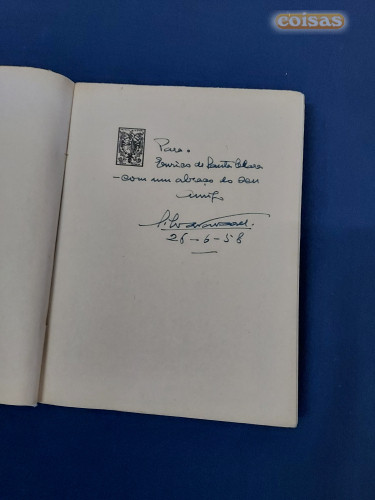 coisas
Para
de Santa Clara
- com um abraço do seu
amigo
26-6-58